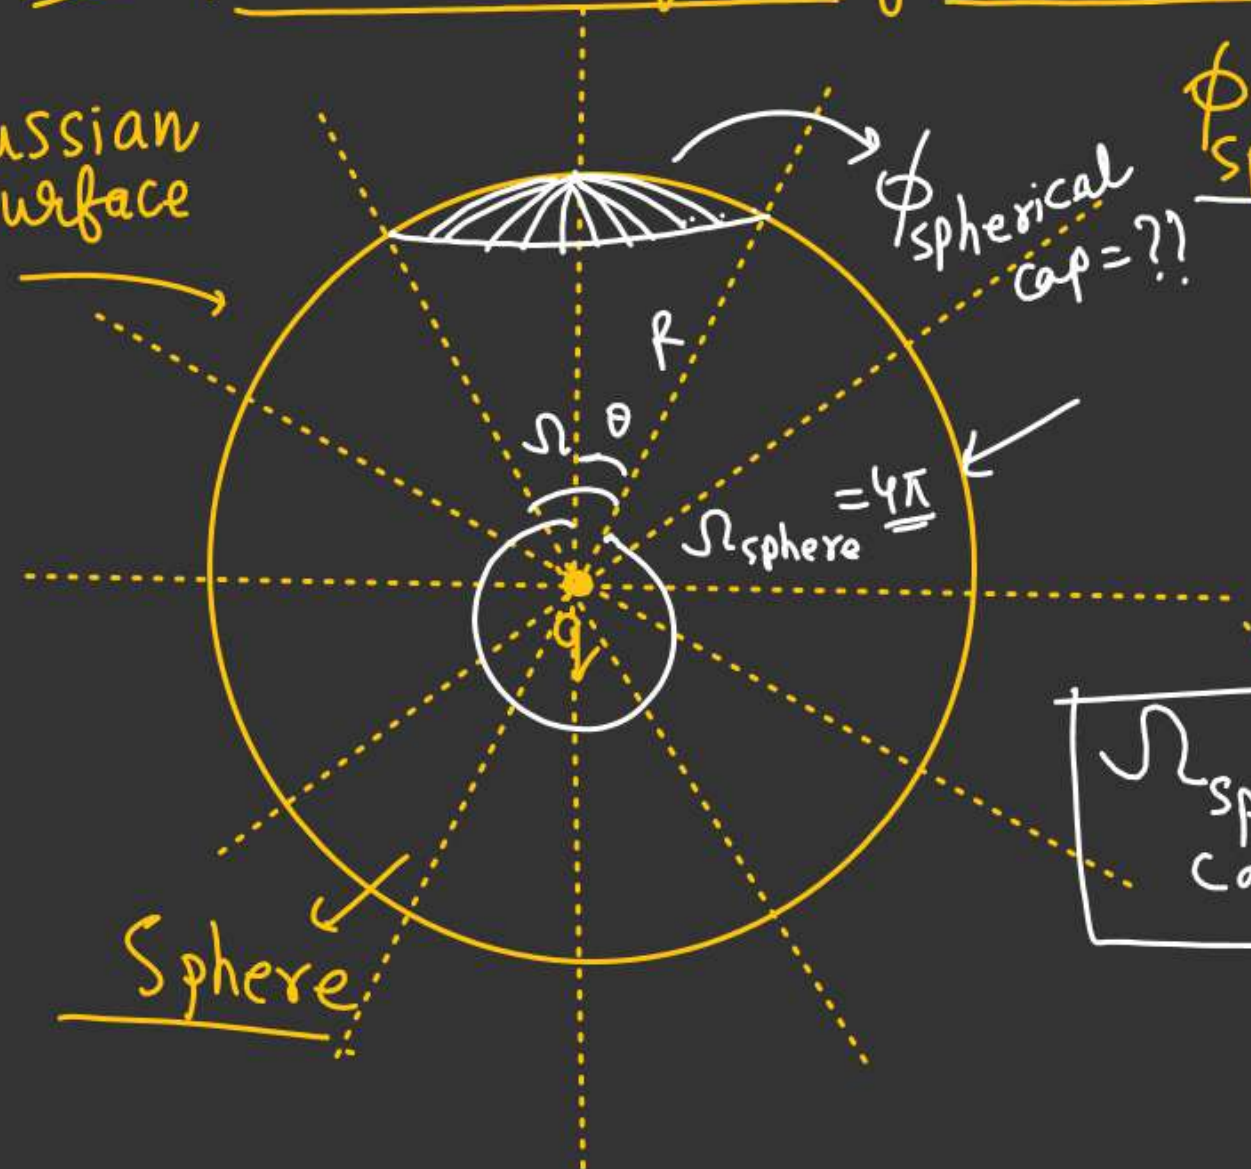 ussian
urface
ϕ
sp
ϕ spherical
cap = ??
R
Ω θ
Ω sphere = 4π
q
Ω sp
ca
Sphere